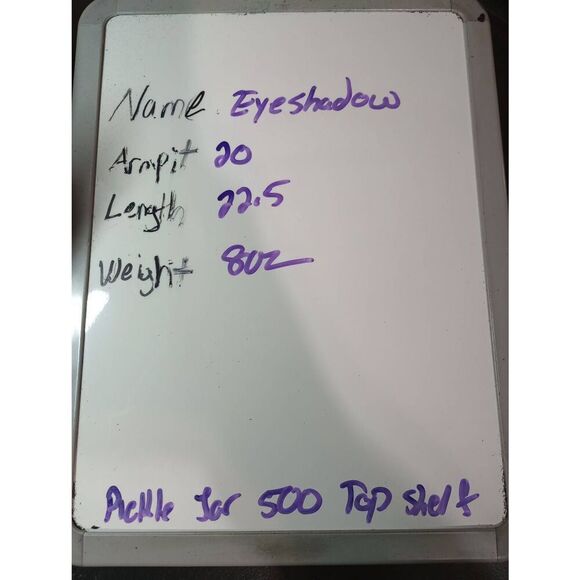 Name Eyeshadow
Armpit 20
Length 22.5
Weight 8oz
Pickle Jar 500 Top shelf